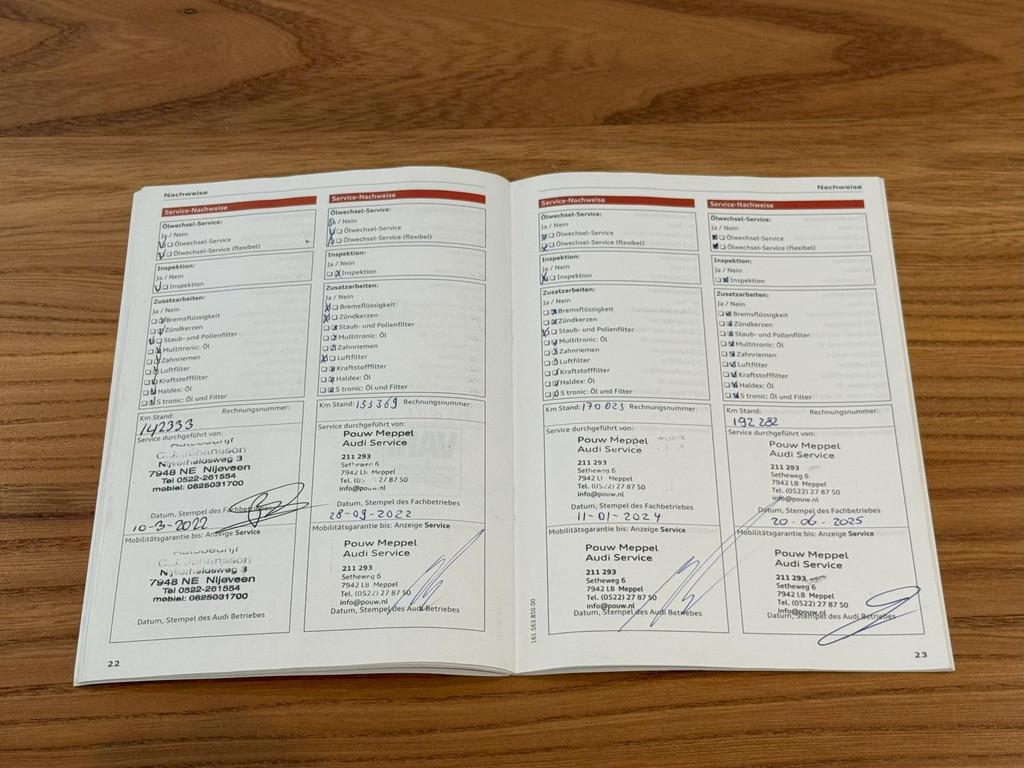 Nachweise
Service-Nachweise
Ölwechsel-Service:
Ja / Nein
Ölwechsel-Service
Ölwechsel-Service (flexibel)
Inspektion:
Ja / Nein
Inspektion
Zusatzarbeiten:
Ja / Nein
Bremsflüssigkeit
Zündkerzen
Staub- und Pollenfilter
Multitronic: Öl
Zahnriemen
Luftfilter
Kraftstofffilter
Haldex: Öl
S tronic: Öl und Filter
Km Stand: Rechnungsnummer:
142333
Service durchgeführt von:
Autobedrijf
C.J. Johansson
Nijverheidsweg 3
7948 NE Nijeveen
Tel 0522-261554
mobiel: 0625031700
Datum, Stempel des Fachbetriebes
10-3-2022
Mobilitätsgarantie bis: Anzeige Service
Autobedrijf
C.J. Johansson
Nijverheidsweg 3
7948 NE Nijeveen
Tel 0522-261554
mobiel: 0625031700
Datum, Stempel des Audi Betriebes
22
Service-Nachweise
Ölwechsel-Service:
Ja / Nein
Ölwechsel-Service
Ölwechsel-Service (flexibel)
Inspektion:
Ja / Nein
Inspektion
Zusatzarbeiten:
Ja / Nein
Bremsflüssigkeit
Zündkerzen
Staub- und Pollenfilter
Multitronic: Öl
Zahnriemen
Luftfilter
Kraftstofffilter
Haldex: Öl
S tronic: Öl und Filter
Km Stand: 153369 Rechnungsnummer:
Service durchgeführt von:
Pouw Meppel
Audi Service
211 293
Setheweg 6
7942 LB Meppel
Tel. 27 87 50
info@pouw.nl
Datum, Stempel des Fachbetriebes
28-09-2022
Mobilitätsgarantie bis: Anzeige Service
Pouw Meppel
Audi Service
211 293
Setheweg 6
7942 LB Meppel
Tel. (0522) 27 87 50
info@pouw.nl
Datum, Stempel des Audi Betriebes
Service-Nachweise
Ölwechsel-Service:
Ja / Nein
Ölwechsel-Service
Ölwechsel-Service (flexibel)
Inspektion:
Ja / Nein
Inspektion
Zusatzarbeiten:
Ja / Nein
Bremsflüssigkeit
Zündkerzen
Staub- und Pollenfilter
Multitronic: Öl
Zahnriemen
Luftfilter
Kraftstofffilter
Haldex: Öl
S tronic: Öl und Filter
Km Stand: 170023 Rechnungsnummer:
Service durchgeführt von:
Pouw Meppel
Audi Service
211 293
Setheweg 6
7942 LB Meppel
Tel. (0522) 27 87 50
info@pouw.nl
Datum, Stempel des Fachbetriebes
11-01-2024
Mobilitätsgarantie bis: Anzeige Service
Pouw Meppel
Audi Service
211 293
Setheweg 6
7942 LB Meppel
Tel. (0522) 27 87 50
info@pouw.nl
Datum, Stempel des Audi Betriebes
161.563.850.00
Nachweise
Service-Nachweise
Ölwechsel-Service:
Ja / Nein
Ölwechsel-Service
Ölwechsel-Service (flexibel)
Inspektion:
Ja / Nein
Inspektion
Zusatzarbeiten:
Ja / Nein
Bremsflüssigkeit
Zündkerzen
Staub- und Pollenfilter
Multitronic: Öl
Zahnriemen
Luftfilter
Kraftstofffilter
Haldex: Öl
S tronic: Öl und Filter
Km Stand: Rechnungsnummer:
192 282
Service durchgeführt von:
Pouw Meppel
Audi Service
211 293
Setheweg 6
7942 LB Meppel
Tel. (0522) 27 87 50
info@pouw.nl
Datum, Stempel des Fachbetriebes
20-06-2025
Mobilitätsgarantie bis: Anzeige Service
Pouw Meppel
Audi Service
211 293
Setheweg 6
7942 LB Meppel
Tel. (0522) 27 87 50
info@pouw.nl
Datum, Stempel des Audi Betriebes
23